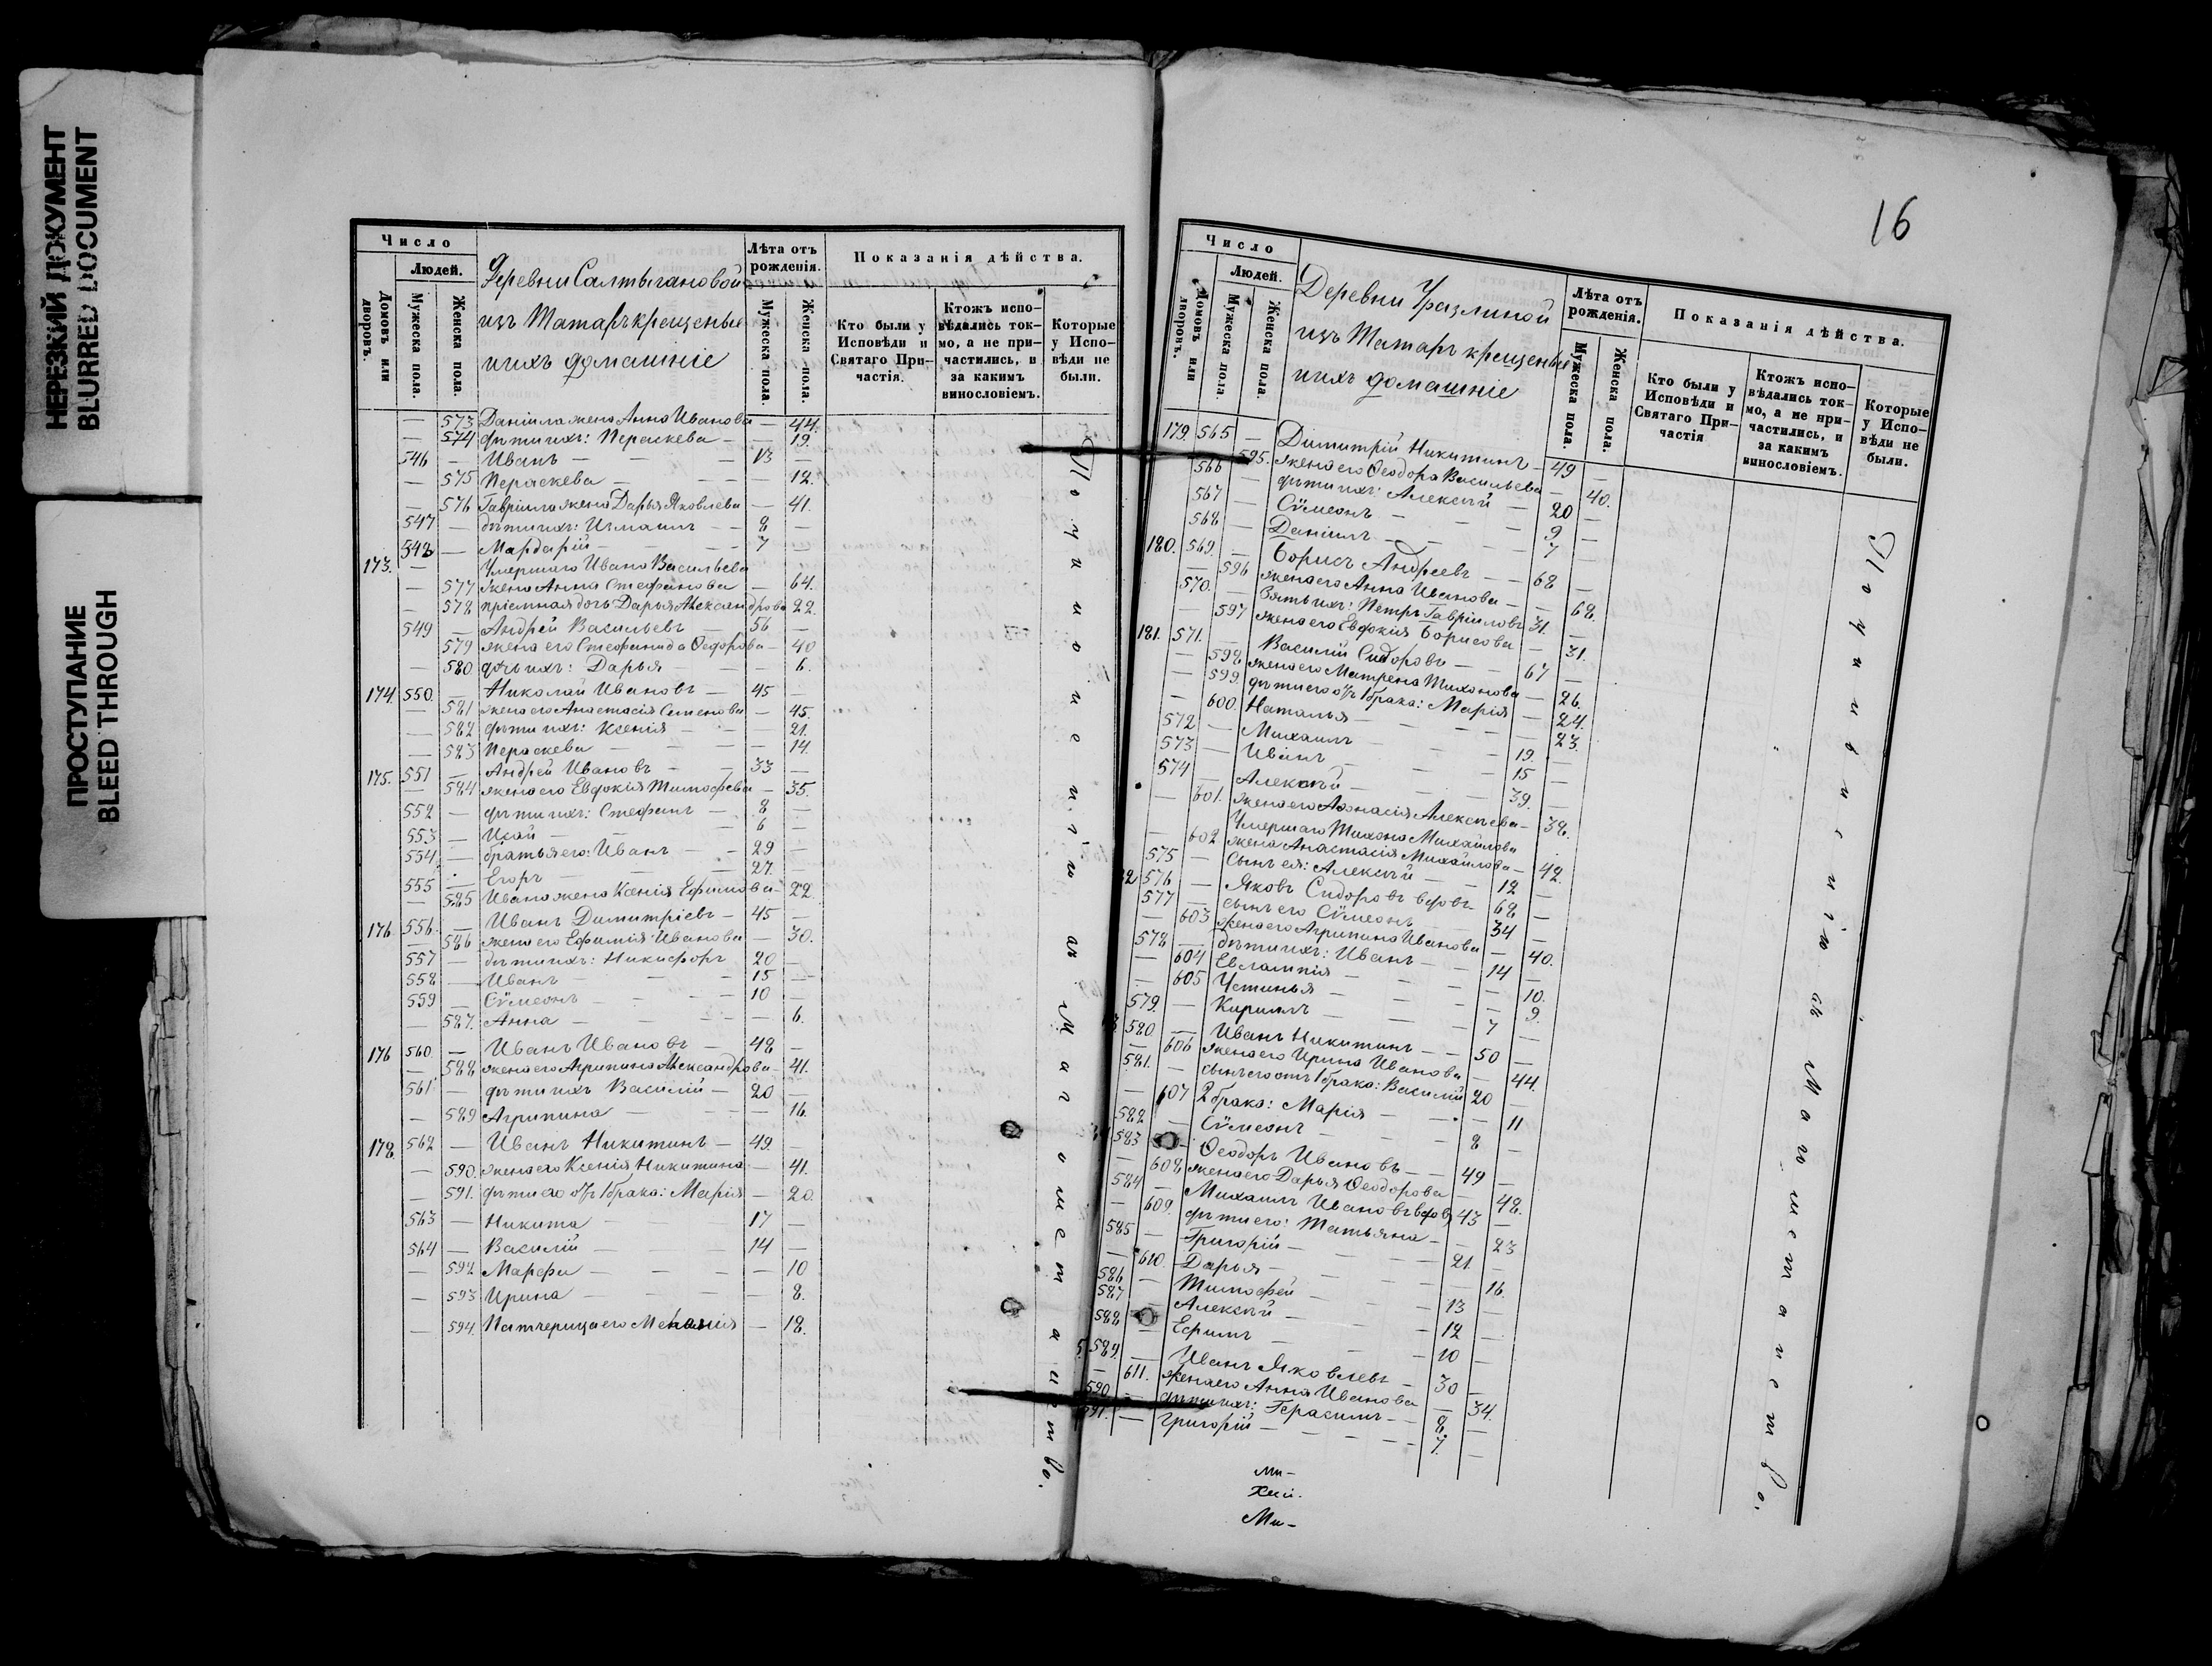 НЕРЕЗКИЙ ДОКУМЕНТ
BLURRED DOCUMENT
ПРОСТУПАНИЕ
BLEED THROUGH
Число
Людей.
Домовъ или дворовъ.
Мужеска пола.
Женска пола.
Деревни Салтыгановой
изъ Татаръ крещеные
и ихъ домашніе
Лѣта отъ рожденія.
Мужеска пола.
Женска пола.
Показанія дѣйства.
Кто были у Исповѣди и Святаго Причастія.
Ктожъ исповѣдались токмо, а не причастились, и за какимъ винословіемъ.
Которые у Исповѣди не были.
— 573 Даніила жена Анна Иванова — 44.
— 574 дѣти ихъ: Пераскева — — 19.
546 — Иванъ — — 13 —
— 575 Пераскева — — 12.
— 576 Гавріила жена Дарья Яковлева — 41.
547 — дѣти ихъ: Измаилъ — — 8 —
548 — Мардарій — — 7 —
173. — Умершаго Ивана Васильева
— 577 жена Анна Стефанова — 64.
— 578 пріемная дочь Дарья Александрова 22.
549 — Андрей Васильевъ — 56 —
579 жена его Стефанида Ѳеодорова — 40
— 580 дочь ихъ: Дарья — — 6.
174. 550. — Николай Ивановъ — 45 —
— 581 жена его Анастасія Семенова — 45.
— 582 дѣти ихъ: Ксенія — — 21.
— 583 Пераскева — — 14.
175. 551 — Андрей Ивановъ — 33 —
— 584 жена его Евдокія Тимофеева — 35.
552 — дѣти ихъ: Стефанъ — 8 —
553 — Исай — — 6 —
554 — братья его: Иванъ — — 29 —
555 — Егоръ — — 27. —
— 585 Ивана жена Ксенія Ефимова — 22.
176. 556. — Иванъ Димитріевъ — 45 —
— 586 жена его Ефимія Иванова — 30.
557 — дѣти ихъ: Никифоръ 20 —
558 — Иванъ — — 15 —
559 — Сѷмеонъ — — 10 —
— 587. Анна — — — 6.
176 560. — Иванъ Ивановъ — 48 —
— 588 жена его Агрипина Александрова — 41.
561 — дѣти ихъ Василій — 20 —
— 589 Агрипина — — 16.
178. 562 — Иванъ Никитинъ — 49. —
— 590. жена его Ксенія Никитина — 41.
— 591. дѣти его отъ 1 брака: Марія — 20.
563 — Никита — 17 —
564 — Василій — 14 —
— 592 Марфа — — 10
— 593 Ирина — — 8.
— 594. Патчерица его Меланія — 18.
Получили отъ Магометанство.
16
Число
Людей.
Домовъ или дворовъ.
Мужеска пола.
Женска пола.
Деревни Уразлиной
изъ Татаръ крещеные
и ихъ домашніе
Лѣта отъ рожденія.
Мужеска пола.
Женска пола.
Показанія дѣйства.
Кто были у Исповѣди и Святаго Причастія
Ктожъ исповѣдались токмо, а не причастились, и за какимъ винословіемъ.
Которые у Исповѣди не были.
179. 565 — Димитрій Никитинъ — 49 —
595. жена его Ѳеодора Васильева — 40.
566 — дѣти ихъ: Алексѣй — 20 —
567 — Сѷмеонъ — — 9 —
568 — Даніилъ — — 7 —
180. 569. — Борисъ Андреевъ — — 68 —
— 596 жена его Анна Иванова — — 68.
570. — Зять ихъ: Петръ Гавріиловъ 31. —
— 597 жена его Евдокія Борисова — 31.
181. 571. — Василій Сидоровъ — 67 —
— 598 жена его Матрена Тихонова — 26.
— 599. дѣти его отъ 1 брака: Марія — 24.
— 600. Наталья — — 23.
572 — Михаилъ — — 19. —
573 — Иванъ — — 15 —
574 — Алексѣй — — 39. —
— 601. жена его Аѳанасія Алексѣева — 38.
Умершаго Тихона Михайлова
— 602 жена Анастасія Михайлова — 42.
575 — сынъ ея: Алексѣй — 12 —
2 576 — Яковъ Сидоровъ вдовъ 68 —
577 — сынъ его Сѷмеонъ — 34 —
— 603 жена его Агрипина Иванова — 40.
578 — дѣти ихъ: Иванъ — 14 —
— 604 Евлампія — — 10.
— 605 Устинья — — 9.
579. — Кириллъ — — 7 —
580 — Иванъ Никитинъ — — 50 —
— 606 жена его Ирина Иванова — 44.
581. — сынъ его отъ 1 брака: Василій 20 —
— 607 2 брака: Марія — — 11
582 — Сѷмеонъ — — 8 —
583 — Ѳеодоръ Ивановъ — — 49 —
— 608 жена его Дарья Ѳеодорова — 48.
584 — Михаилъ Ивановъ вдовъ 43 —
— 609. дѣти его: Татьяна — — 23
585 — Григорій — — 21 —
— 610. Дарья — — 16.
586 — Тимофей — — 13 —
587 — Алексѣй — — 12 —
588 — Ефимъ — — 10 —
5. 589. — Иванъ Яковлевъ — 30 —
— 611. жена его Анна Иванова — 34.
590. — дѣти ихъ: Герасимъ — — 8. —
591. — Григорій — — 7. —
Магометанство.
ми-
Ми-